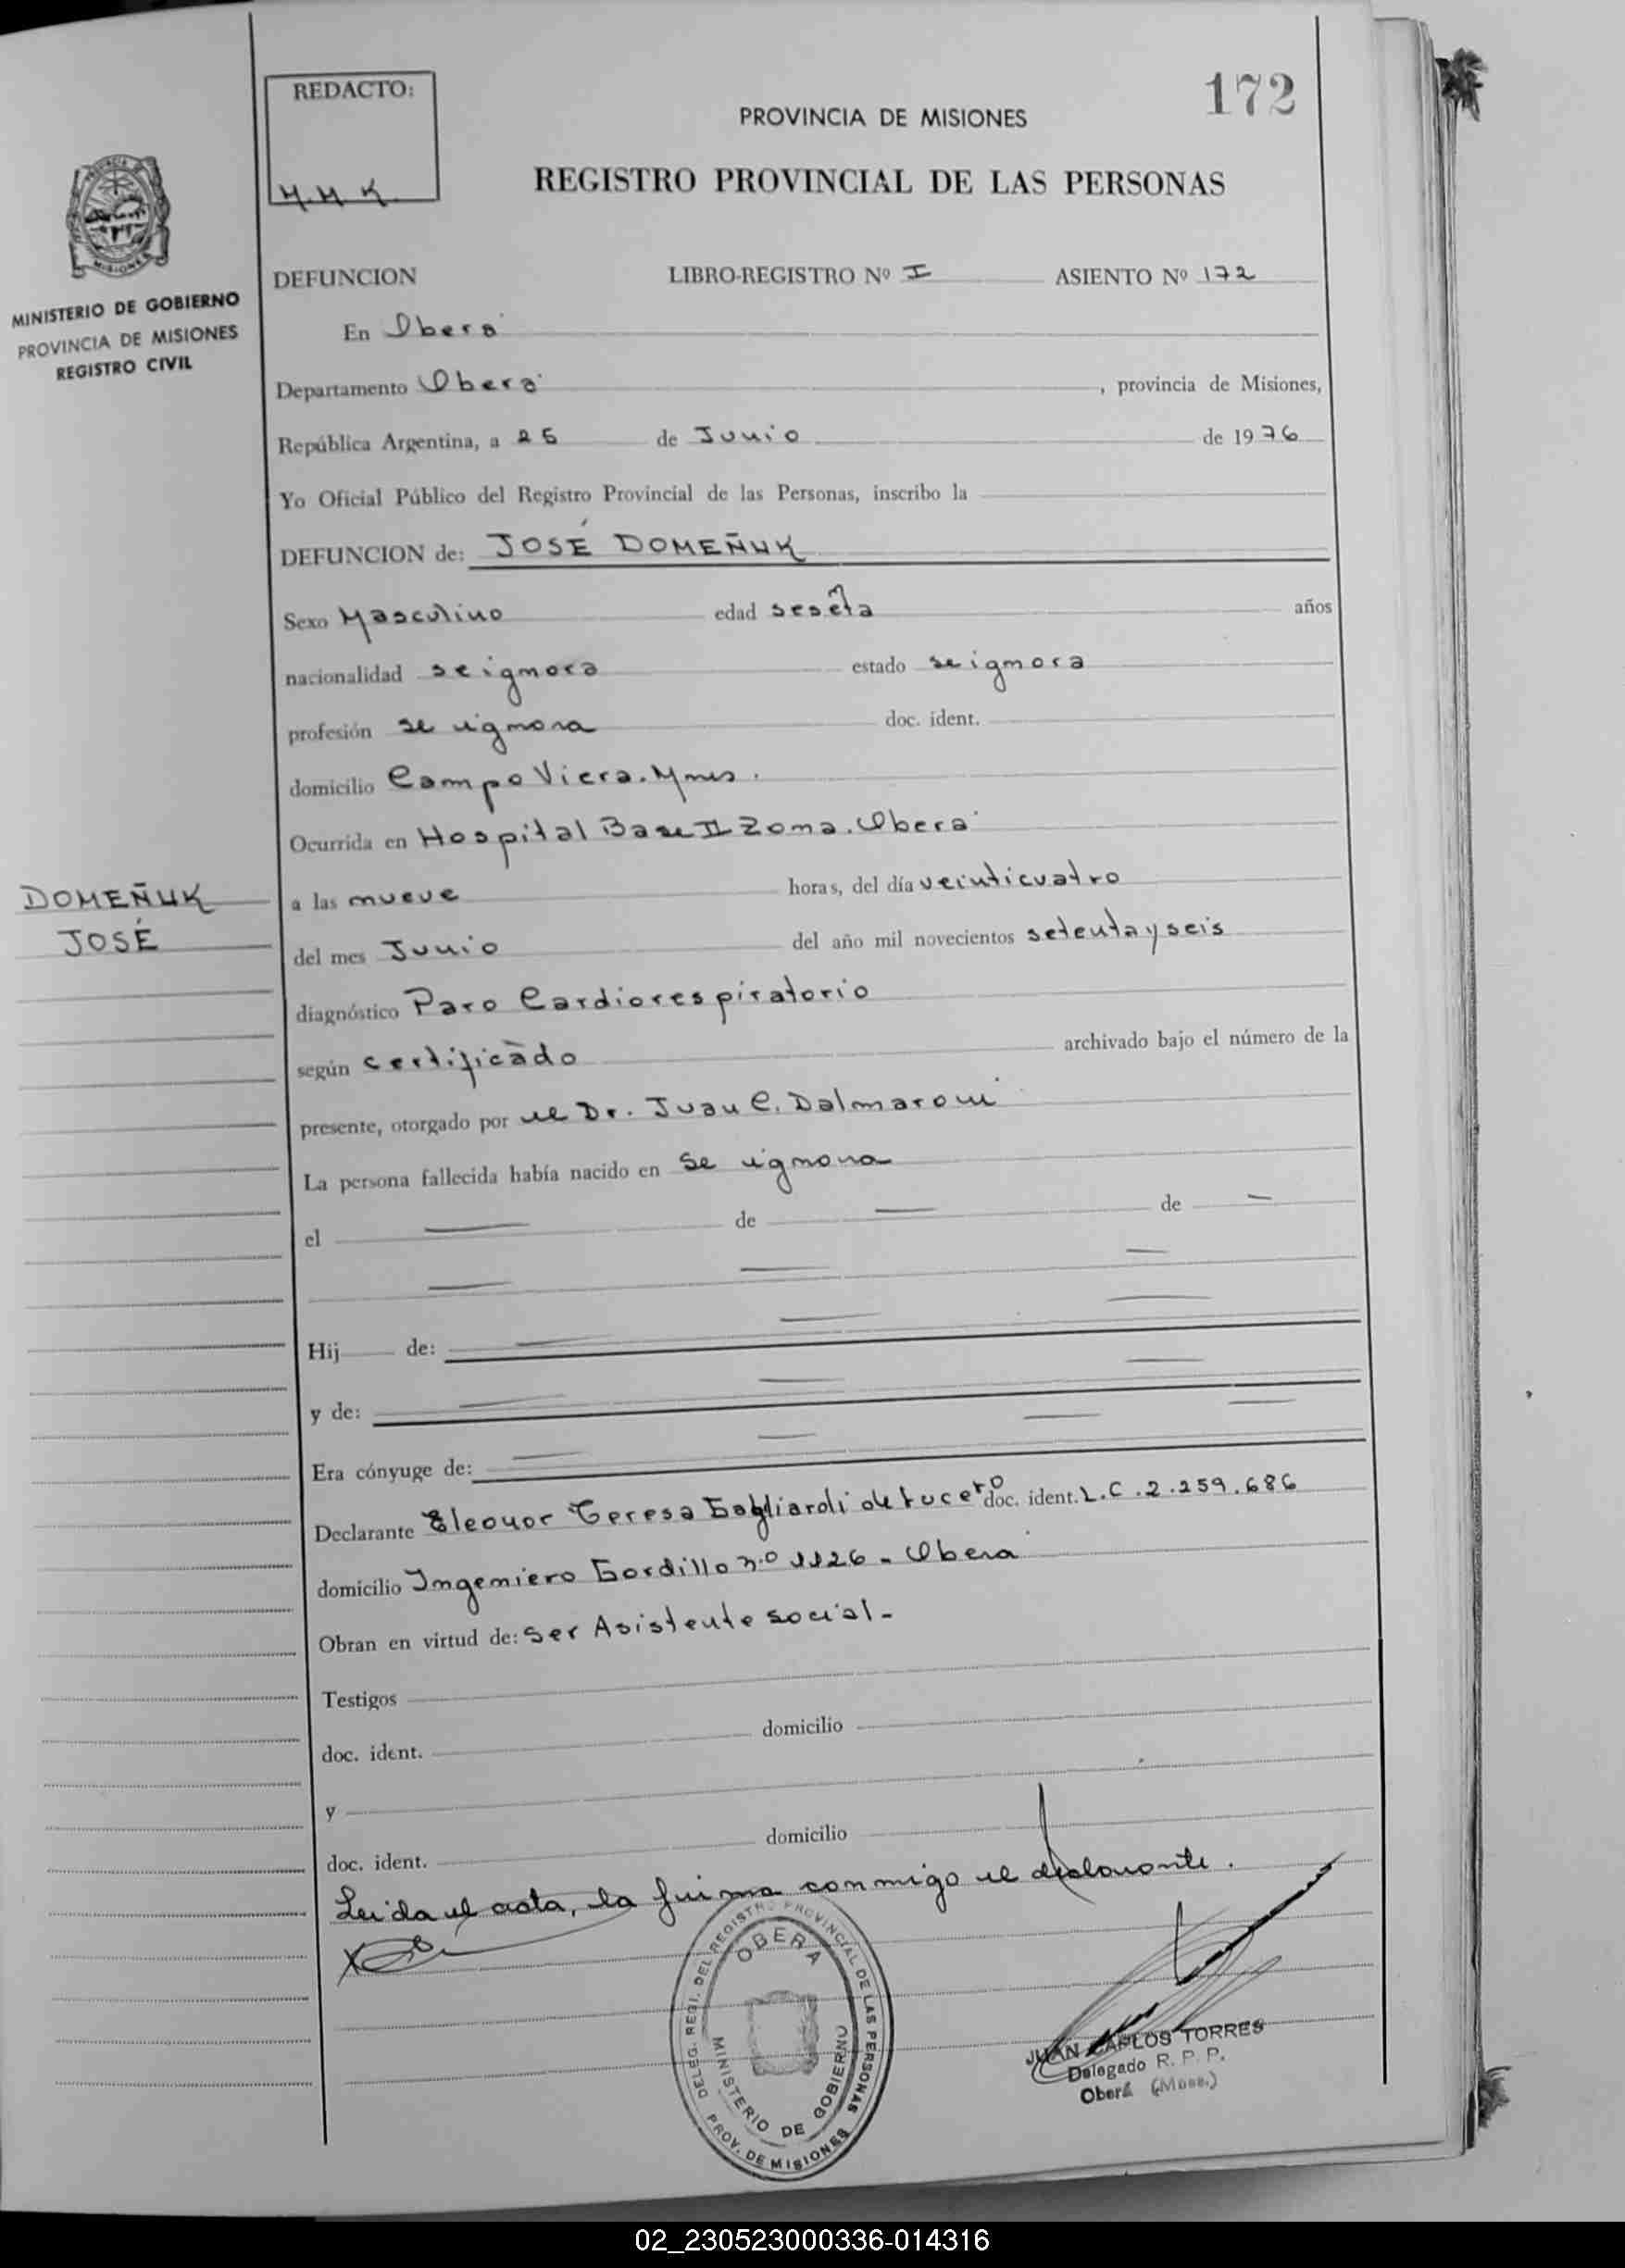 172
REDACTO:
M.M.K.
PROVINCIA DE MISIONES
REGISTRO PROVINCIAL DE LAS PERSONAS
MINISTERIO DE GOBIERNO
PROVINCIA DE MISIONES
REGISTRO CIVIL
DEFUNCION LIBRO-REGISTRO Nº I ASIENTO Nº 172
En Oberá
Departamento Oberá, provincia de Misiones,
República Argentina, a 25 de Junio de 1976
Yo Oficial Público del Registro Provincial de las Personas, inscribo la
DEFUNCION de: JOSÉ DOMEÑUK
Sexo Masculino edad seseta años
nacionalidad se ignora estado se ignora
profesión se ignora doc. ident.
domicilio Campo Viera. Mnes.
Ocurrida en Hospital Base II Zona. Oberá
DOMEÑUK
JOSÉ
a las nueve horas, del día veinticuatro
del mes Junio del año mil novecientos setenta y seis
diagnóstico Paro Cardiorespiratorio
según certificado archivado bajo el número de la
presente, otorgado por el Dr. Juan C. Dalmaroni
La persona fallecida había nacido en se ignora
el — de — de —
Hij de:
y de:
Era cónyuge de:
Declarante Eleonor Teresa Gagliardi de Lucero doc. ident. L.C. 2.259.686
domicilio Ingeniero Gordillo n.º 1126 - Oberá
Obran en virtud de: Ser Asistente social -
Testigos
doc. ident. domicilio
y
doc. ident. domicilio
Leida el acta, la firma conmigo el declarante.
DELEG. REGI. DEL REGISTRO PROVINCIAL DE LAS PERSONAS
OBERA
MINISTERIO DE GOBIERNO
PROV. DE MISIONES
JUAN CARLOS TORRES
Delegado R. P. P.
Oberá (Mnes.)
02_230523000336-014316